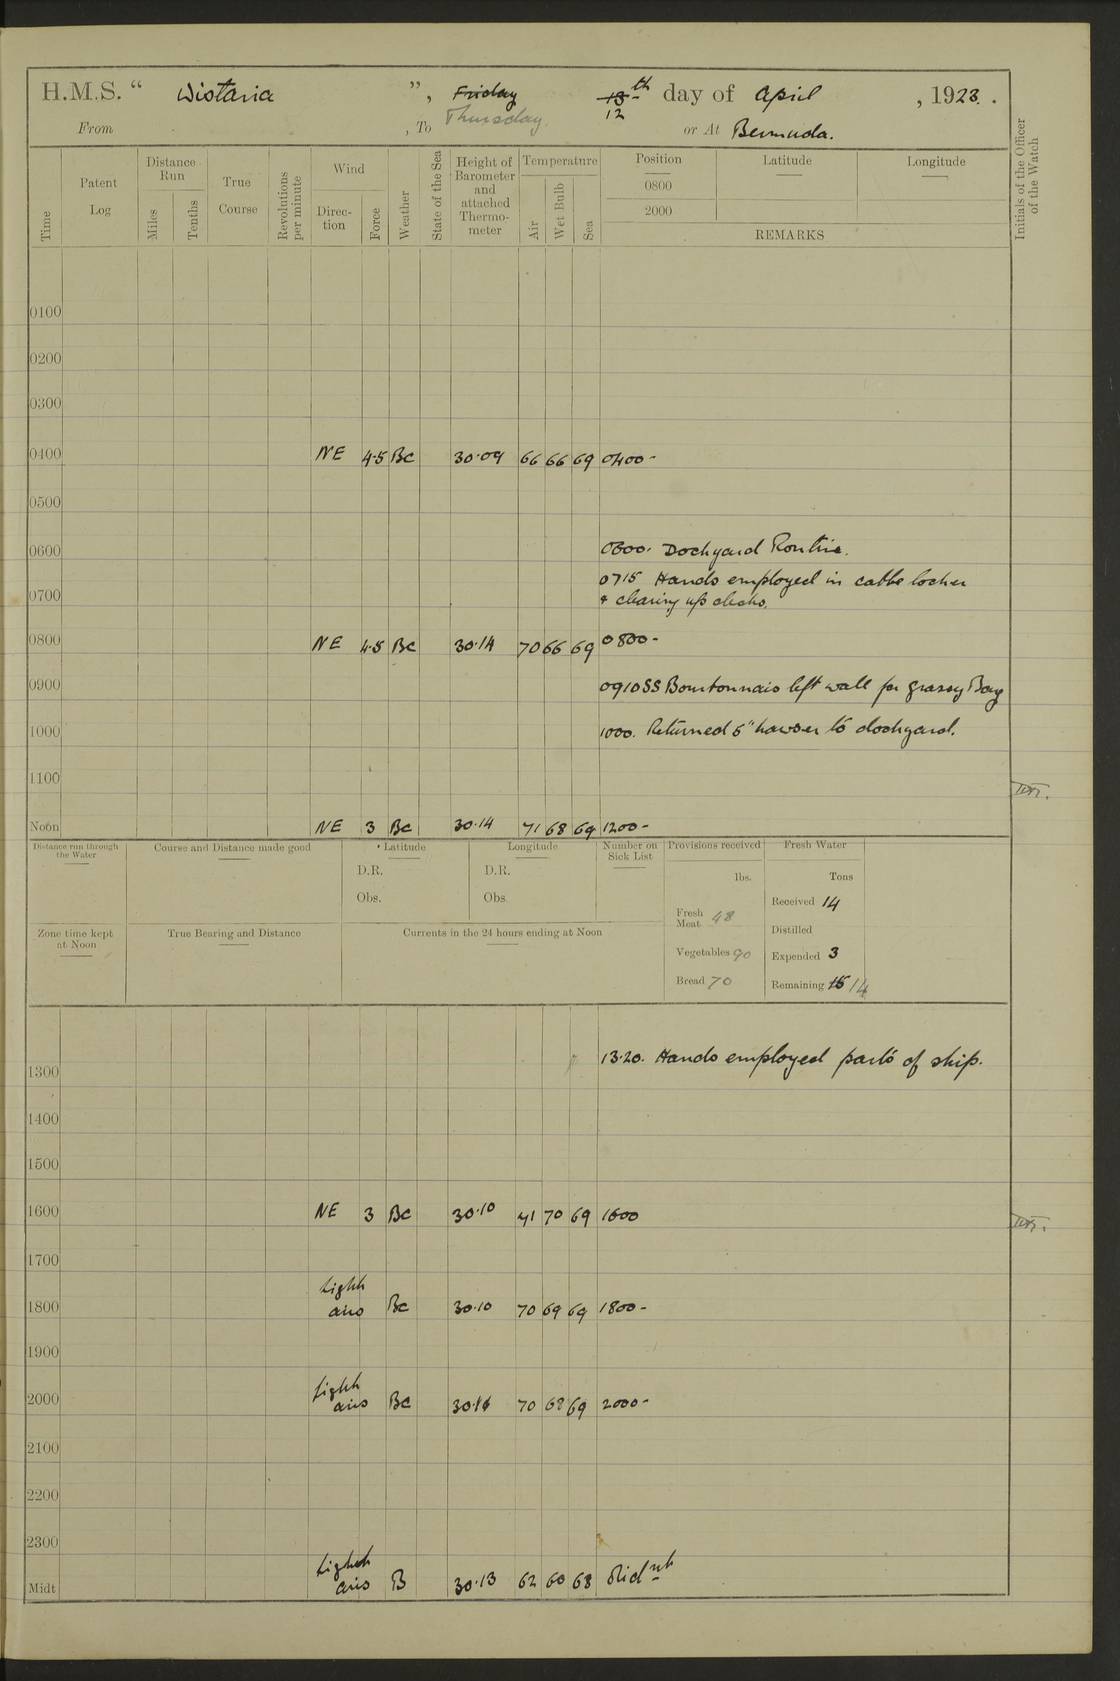 H.M.S. “ Wistaria ”, Friday 13th day of April , 1923.
Thursday 12
From , To or At Bermuda.
Time
Patent Log
Distance Run
Miles
Tenths
True Course
Revolutions per minute
Wind
Direc- tion
Force
Weather
State of the Sea
Height of Barometer and attached Thermo- meter
Temperature
Air
Wet Bulb
Sea
Position
0800
2000
Latitude
Longitude
REMARKS
Initials of the Officer of the Watch
0100
0200
0300
0400 NE 4.5 Bc 30.09 66 66 69 0400-
0500
0600 0600. Dockyard Routine.
0715 Hands employed in cable locker
0700 & clearing up decks.
0800 NE 4.5 Bc 30.14 70 66 69 0800-
0900 0910 SS Bourbonnais left wall for Grassy Bay
1000 1000. Returned 6" hawser to dockyard.
1100
Noon NE 3 Bc 30.14 71 68 69 1200-
Distance run through the Water
Course and Distance made good
Latitude
D.R.
Obs.
Longitude
D.R.
Obs
Number on Sick List
Provisions received
lbs.
Fresh Meat 48
Vegetables 90
Bread 70
Fresh Water
Tons
Received 14
Distilled
Expended 3
Remaining 15 14
Zone time kept at Noon
True Bearing and Distance
Currents in the 24 hours ending at Noon
13.20. Hands employed parts of ship.
1300
1400
1500
1600 NE 3 Bc 30.10 71 70 69 1600
1700
1800 Light airs Bc 30.10 70 69 69 1800-
1900
2000 Light airs Bc 70 68 69 2000-
2100
2200
2300
Midt Light airs B 30.13 62 60 68 Midnt